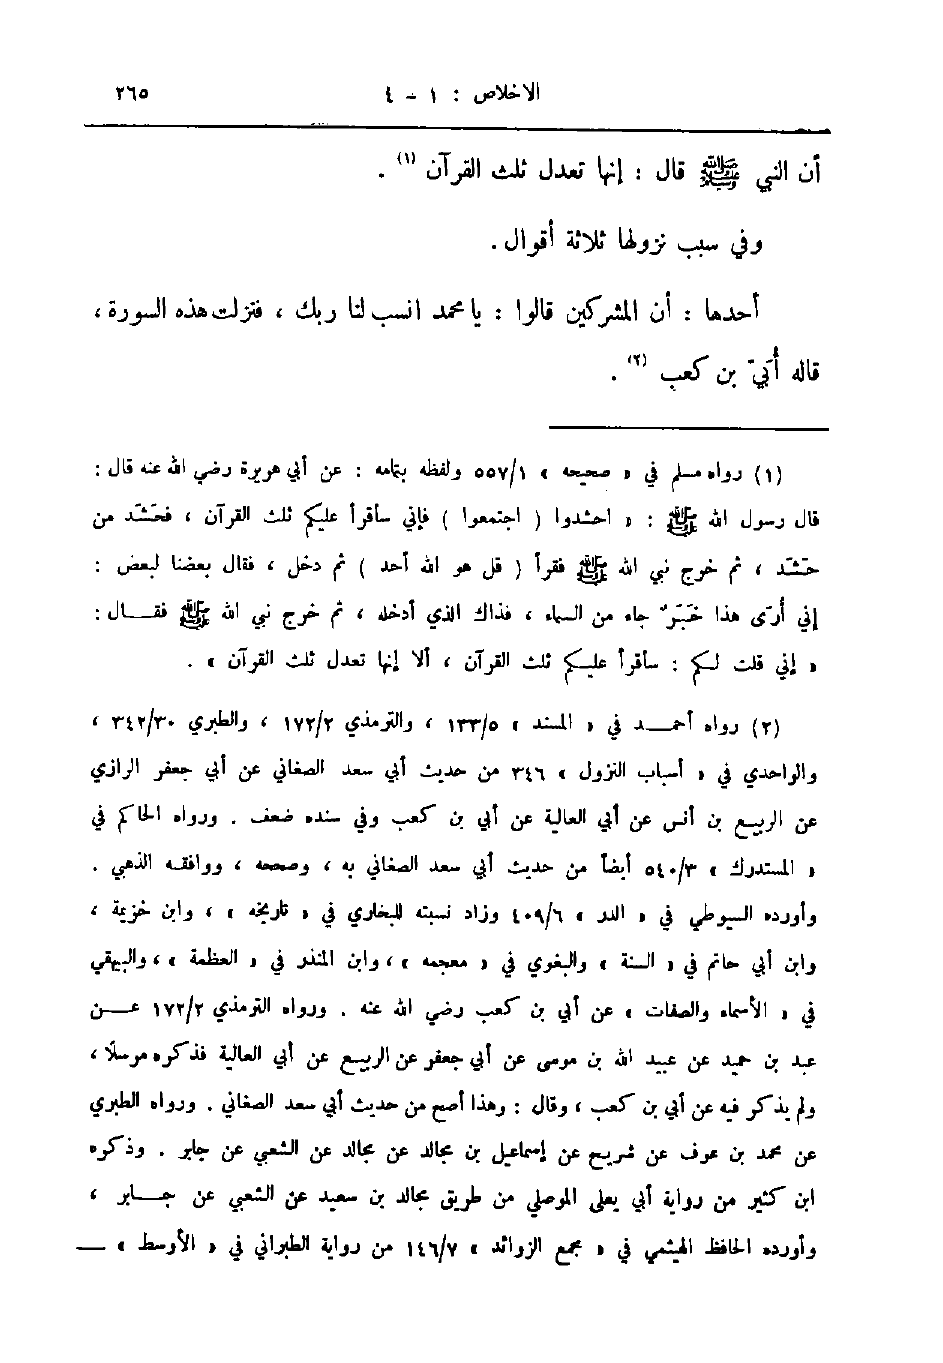 الاخلاص : ١ - ٤ ٢٦٥
أن النبي ﷺ قال : إنها تعدل ثلث القرآن (١) .
وفي سبب نزولها ثلاثة أقوال .
أحدها : أن المشركين قالوا : يا محمد انسب لنا ربك ، فنزلت هذه السورة ،
قاله أُبَيّ بن كعب (٢) .
(١) رواه مسلم في « صحيحه » ٥٥٧/١ ولفظه بتمامه : عن أبي هريرة رضي الله عنه قال :
قال رسول الله ﷺ : « احشدوا ( اجتمعوا ) فإني سأقرأ عليكم ثلث القرآن ، فحَشَد من
حَشَد ، ثم خرج نبي الله ﷺ فقرأ ( قل هو الله أحد ) ثم دخل ، فقال بعضنا لبعض :
إني أُرَى هذا خَبَرٌ جاء من السماء ، فذاك الذي أدخله ، ثم خرج نبي الله ﷺ فقـــال :
« إني قلت لكم : سأقرأ عليكم ثلث القرآن ، ألا إنها تعدل ثلث القرآن » .
(٢) رواه أحمـــد في « المسند » ١٣٣/٥ ، والترمذي ١٧٢/٢ ، والطبري ٣٤٢/٣٠ ،
والواحدي في « أسباب النزول » ٣٤٦ من حديث أبي سعد الصغاني عن أبي جعفر الرازي
عن الربيع بن أنس عن أبي العالية عن أبي بن كعب وفي سنده ضعف . ورواه الحاكم في
« المستدرك » ٥٤٠/٣ أيضاً من حديث أبي سعد الصغاني به ، وصححه ، ووافقـه الذهبي .
وأورده السيوطي في « الدر » ٤٠٩/٦ وزاد نسبته للبخاري في « تاريخه » ، وابن خزيمة ،
وابن أبي حاتم في « السنة » والبغوي في « معجمه » ، وابن المنذر في « العظمة » ، والبيهقي
في « الأسماء والصفات » عن أبي بن كعب رضي الله عنه . ورواه الترمذي ١٧٢/٢ عـــن
عبد بن حميد عن عبيد الله بن موسى عن أبي جعفر عن الربيع عن أبي العالية فذكره مرسلًا ،
ولم يذكر فيه عن أبي بن كعب ، وقال : وهذا أصح من حديث أبي سعد الصغاني . ورواه الطبري
عن محمد بن عوف عن شريح عن إسماعيل بن مجالد عن مجالد عن الشعبي عن جابر . وذكره
ابن كثير من رواية أبي يعلى الموصلي من طريق مجالد بن سعيد عن الشعبي عن جـــابر ،
وأورده الحافظ الهيثمي في « مجمع الزوائد » ١٤٦/٧ من رواية الطبراني في « الأوسط » —